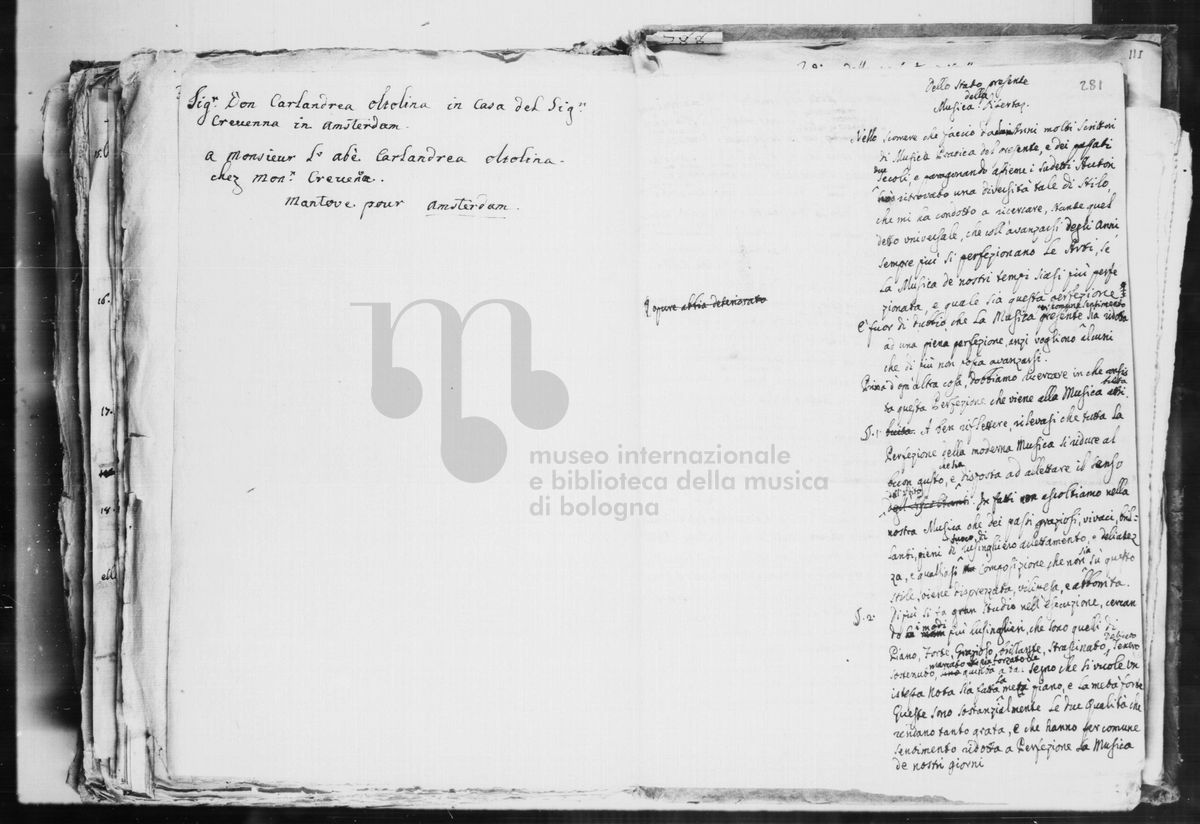 Sig.r Don Carlandrea Oltolina in Casa del Sig.r
Crevenna in Amsterdam.
a Monsieur L'abè Carlandrea Oltolina.
chez Mon.r Creveña.
Mantove pour Amsterdam.
o pure abbia deteriorato
museo internazionale
e biblioteca della musica
di bologna
III
281
Dello Stato presente
della
Musica
Nello scorrere che faccio d'alcuni molti Scrittori
di Musica Pratica del presente, e dei passati
Secoli, e paragonando assieme i sudetti Autori
hò ritrovato una diversità tale di Stilo,
che mi ha condotto a ricercare, stante quel
detto universale, che coll'avanzarsi degli Anni
sempre più si perfezionano le Arti, se
la Musica de nostri tempi siasi più perfe
zionata, e quale sia questa perfezione
di comune sentimento
È fuor di dubbio, che la Musica presente sia ridotta
ad una piena perfezione, anzi vogliono alcuni
che di più non possa avanzarsi.
Prima d'ogn'altra cosa, dobbiamo ricercare in che consis
ta questa Perfezione che viene alla Musica attri
buita
§. 1. buita. A ben riflettere, rilevasi che tutta la
Perfezione della moderna Musica si riduce al
buon gusto, e disposta ad allettare il senso
In fatti non ascoltiamo nella
nostra Musica che dei passi graziosi, vivaci, bril-
lanti, pieni di lusinghiero allettamento, e delicatez
za, e qualsiasi composizione, che non sia sù questo
stile, viene disprezzata, vilipesa, e abborrita.
§. 2. Di più si fa gran studio nell'esecuzione, cercan
do i modi più lusinghieri, che sono quelli di
Piano, Forte, Grazioso, brillante, strascinato,
sostenuto, segno che si vuole un
istessa Nota sia fatta la metà piano, e la metà forte
Queste sono sostanzialmente le due qualità che
rendano tanto grata, e che hanno per comune
sentimento ridotta a Perfezione la Musica
de nostri giorni
15.
16.
17.
18.